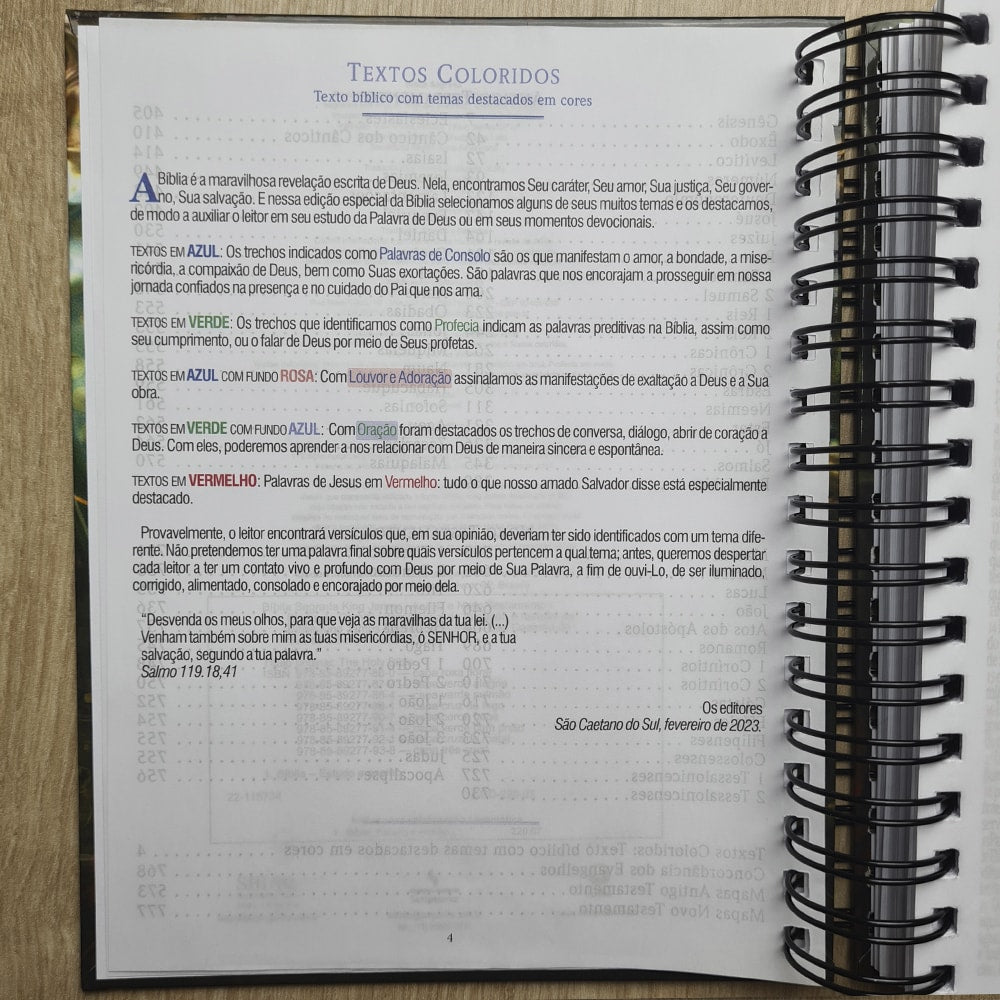 TEXTOS COLORIDOS
Texto bíblico com temas destacados em cores
A Bíblia é a maravilhosa revelação escrita de Deus. Nela, encontramos Seu caráter, Seu amor, Sua justiça, Seu gover-
no, Sua salvação. E nessa edição especial da Bíblia selecionamos alguns de seus muitos temas e os destacamos,
de modo a auxiliar o leitor em seu estudo da Palavra de Deus ou em seus momentos devocionais.
TEXTOS EM AZUL: Os trechos indicados como Palavras de Consolo são os que manifestam o amor, a bondade, a mise-
ricórdia, a compaixão de Deus, bem como Suas exortações. São palavras que nos encorajam a prosseguir em nossa
jornada confiados na presença e no cuidado do Pai que nos ama.
TEXTOS EM VERDE: Os trechos que identificamos como Profecia indicam as palavras preditivas na Bíblia, assim como
seu cumprimento, ou o falar de Deus por meio de Seus profetas.
TEXTOS EM AZUL COM FUNDO ROSA: Com Louvor e Adoração assinalamos as manifestações de exaltação a Deus e a Sua
obra.
TEXTOS EM VERDE COM FUNDO AZUL: Com Oração foram destacados os trechos de conversa, diálogo, abrir de coração a
Deus. Com eles, poderemos aprender a nos relacionar com Deus de maneira sincera e espontânea.
TEXTOS EM VERMELHO: Palavras de Jesus em Vermelho: tudo o que nosso amado Salvador disse está especialmente
destacado.
Provavelmente, o leitor encontrará versículos que, em sua opinião, deveriam ter sido identificados com um tema dife-
rente. Não pretendemos ter uma palavra final sobre quais versículos pertencem a qual tema; antes, queremos despertar
cada leitor a ter um contato vivo e profundo com Deus por meio de Sua Palavra, a fim de ouvi-Lo, de ser iluminado,
corrigido, alimentado, consolado e encorajado por meio dela.
“Desvenda os meus olhos, para que veja as maravilhas da tua lei. (...)
Venham também sobre mim as tuas misericórdias, ó SENHOR, e a tua
salvação, segundo a tua palavra.”
Salmo 119.18,41
Os editores
São Caetano do Sul, fevereiro de 2023.
4